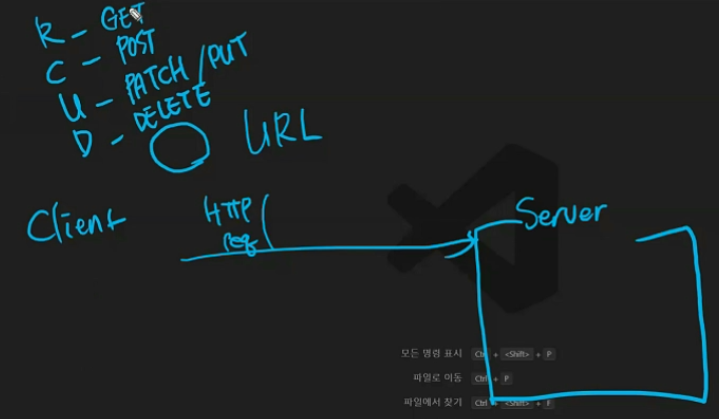 R - GET
C - POST
U - PATCH / PUT
D - DELETE
URL
Client
HTTP
req
Server
모든 명령 표시 Ctrl + <Shift> + P
파일로 이동 Ctrl + P
파일에서 찾기 Ctrl + <Shift> + F